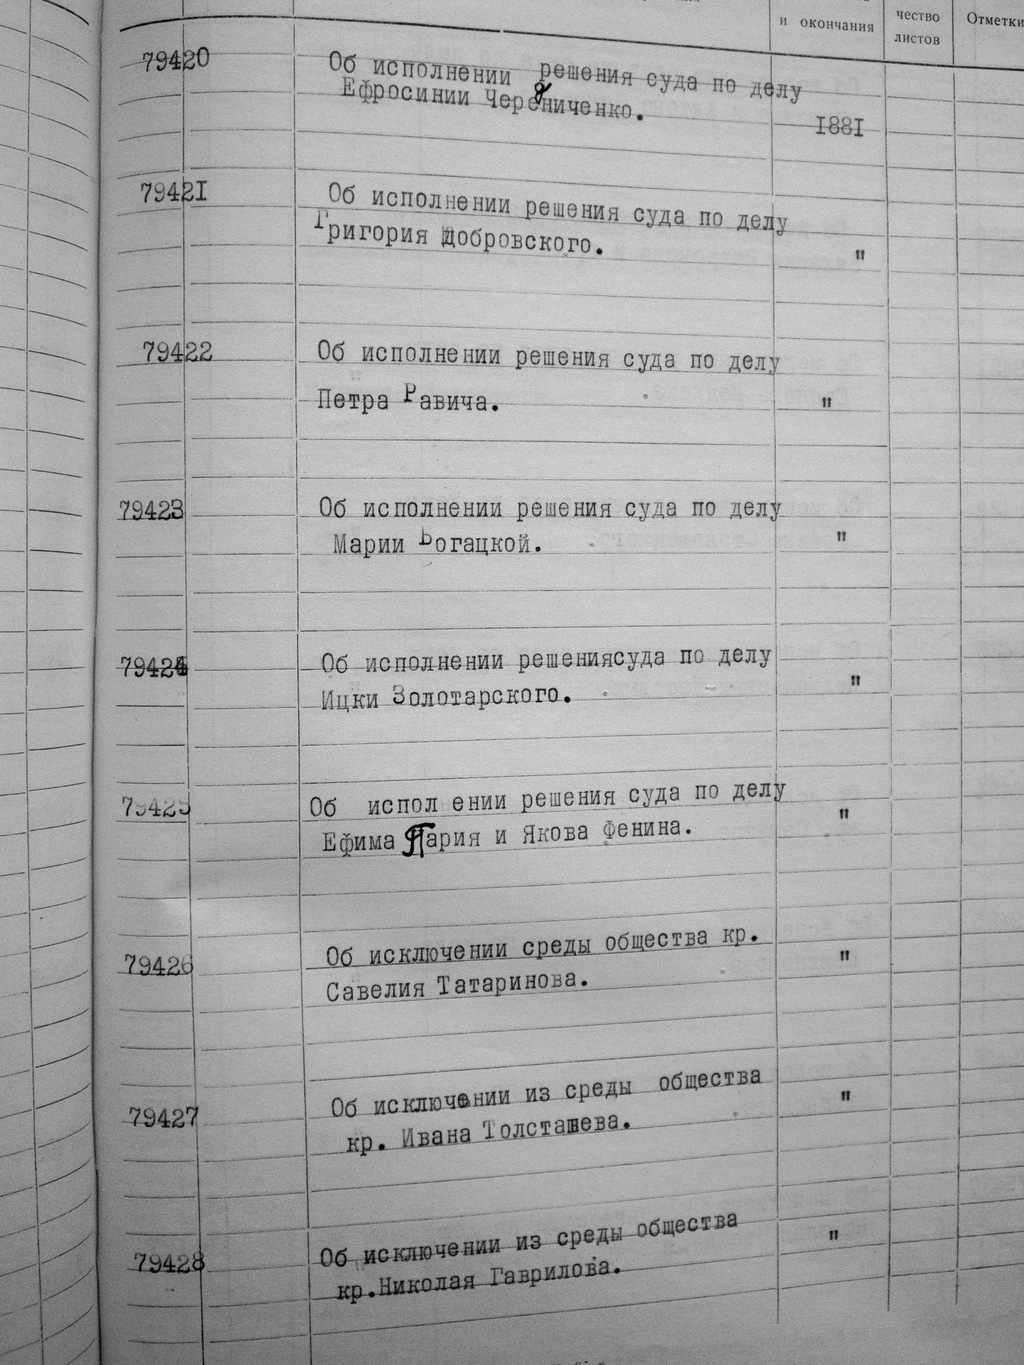 и окончания
чество
листов
Отметки
79420
Об исполнении решения суда по делу
Ефросинии Черениченко.
1881
79421
Об исполнении решения суда по делу
Григория Добровского.
"
79422
Об исполнении решения суда по делу
Петра Равича.
"
79423
Об исполнении решения суда по делу
Марии Богацкой.
"
79424
Об исполнении решениясуда по делу
Ицки Золотарского.
"
79425
Об испол ении решения суда по делу
Ефима Пария и Якова Фенина.
"
79426
Об исключении среды общества кр.
Савелия Татаринова.
"
79427
Об исключении из среды общества
кр. Ивана Толсташева.
"
79428
Об исключении из среды общества
кр.Николая Гаврилова.
"